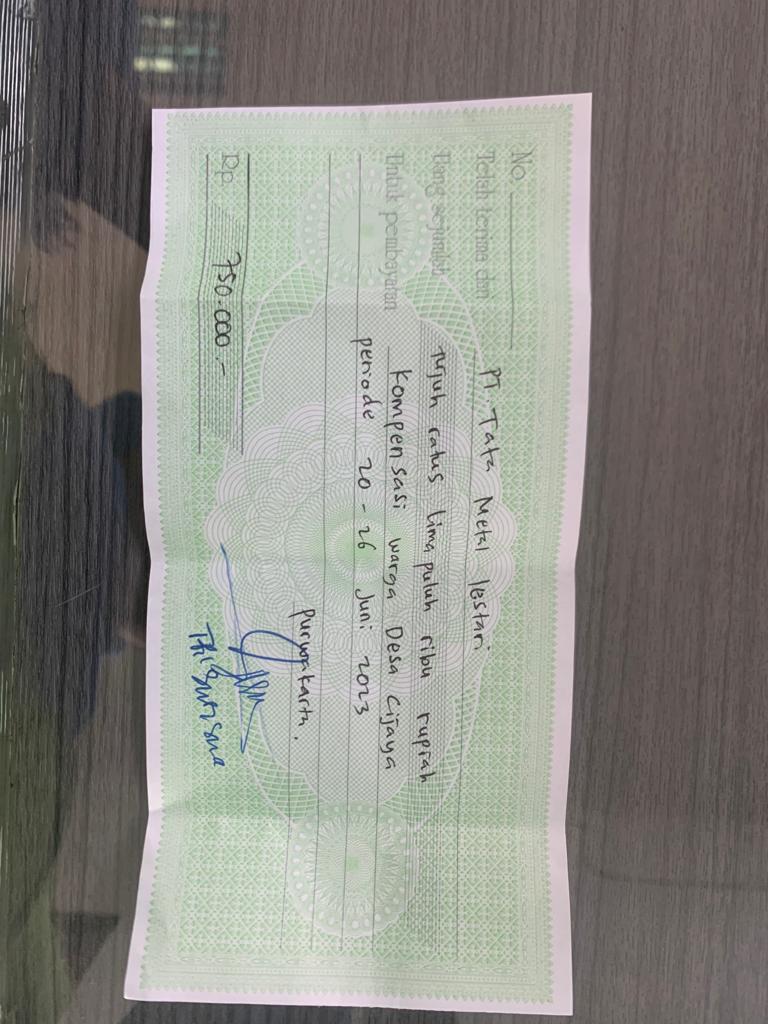 No.
Telah terima dari PT. Tata Metal lestari
Uang sejumlah tujuh ratus lima puluh ribu rupiah
Untuk pembayaran kompensasi warga Desa Cijaya
periode 20 - 26 Juni 2023
purwakarta.
Rp. 750.000.-